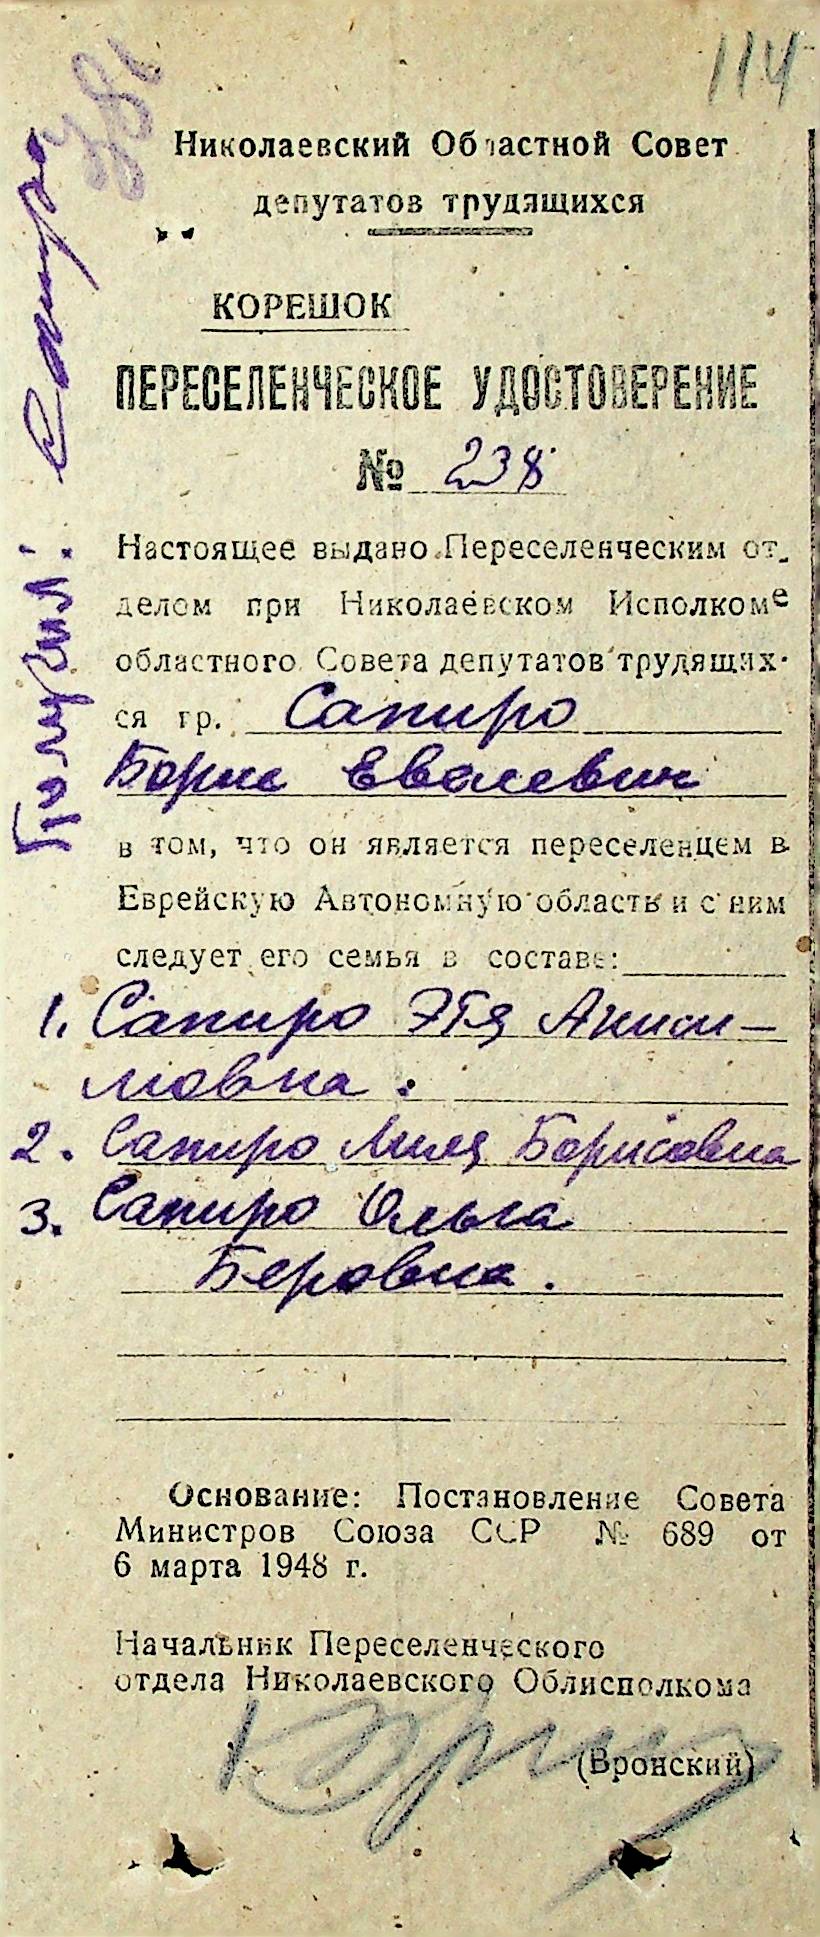 114
381
Николаевский Областной Совет
депутатов трудящихся
КОРЕШОК
ПЕРЕСЕЛЕНЧЕСКОЕ УДОСТОВЕРЕНИЕ
№ 238
Настоящее выдано Переселенческим от-
делом при Николаевском Исполкоме
областного Совета депутатов трудящих-
ся гр. Сапиро
Борис
в том, что он является переселенцем в
Еврейскую Автономную область и с ним
следует его семья в составе:
1. Сапиро Этя Аниси-
мовна.
2. Сапиро Лиля Борисовна
3. Сапиро Ольга
Беровна.
Основание: Постановление Совета
Министров Союза ССР № 689 от
6 марта 1948 г.
Начальник Переселенческого
отдела Николаевского Облисполкома
(Вронский)
Получил: Сапиро